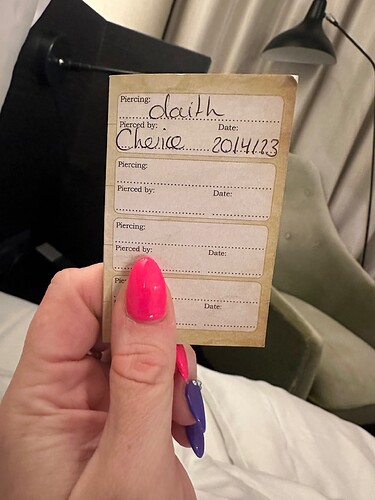 Piercing: daith
Pierced by: Date:
Cherice 20/4/23
Piercing:
Pierced by: Date:
Piercing:
Pierced by: Date:
Date: